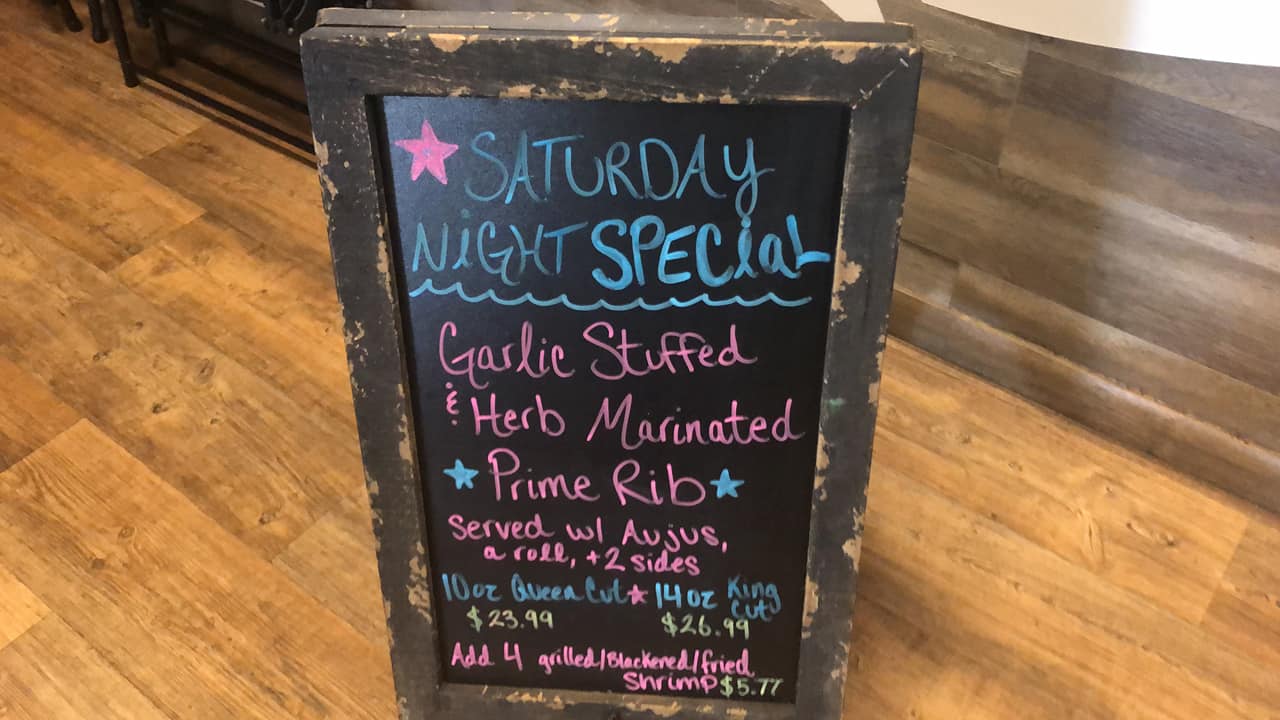 SATURDAY
NIGHT SPECIAL
Garlic Stuffed
& Herb Marinated
Prime Rib
Served w/ Aujus,
a roll, + 2 sides
10oz Queen Cut 14oz King Cut
$23.99 $26.99
Add 4 grilled/Blackened/fried
Shrimp $5.77